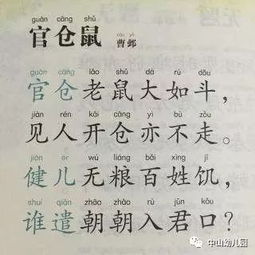 guān cāng shǔ
官仓鼠
cáo yè
曹邺
guān cāng lǎo shǔ dà rú dǒu
官仓老鼠大如斗，
jiàn rén kāi cāng yì bù zǒu
见人开仓亦不走。
jiàn ér wú liáng bǎi xìng jī
健儿无粮百姓饥，
shuí qiǎn zhāo zhāo rù jūn kǒu
谁遣朝朝入君口？
中山幼儿园